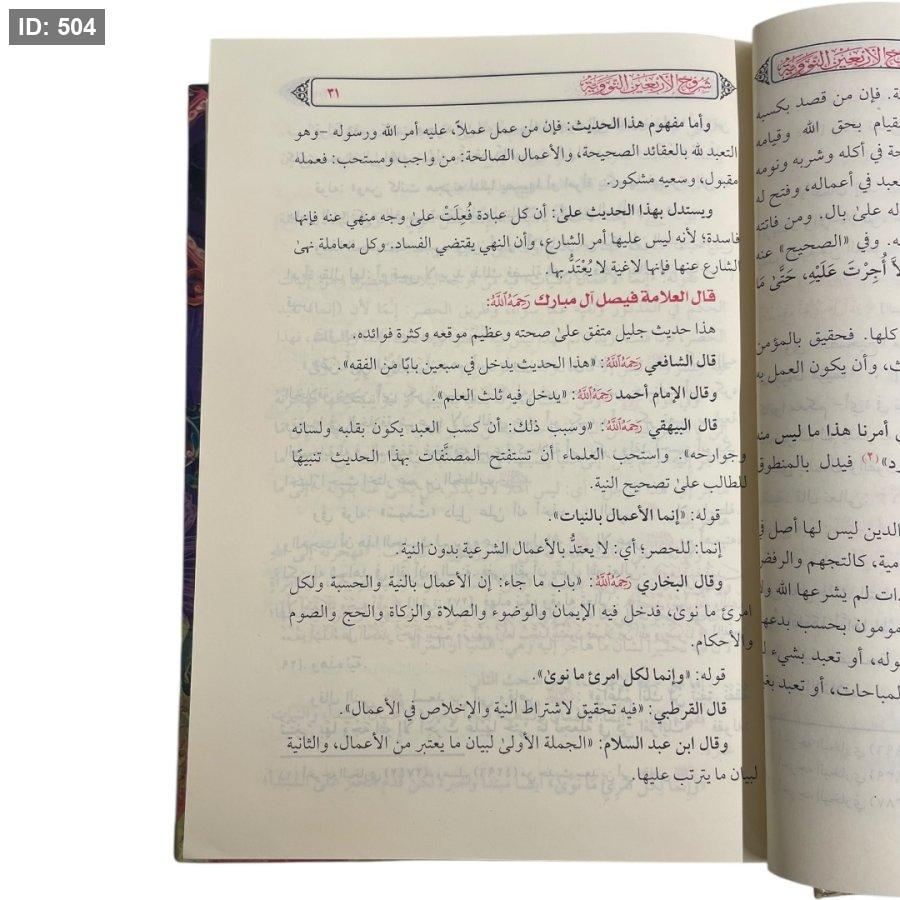 ID: 504
شروح الأربعين النووية
٣١
وأما مفهوم هذا الحديث: فإن من عمل عملًا، عليه أمر الله ورسوله -وهو
التعبد لله بالعقائد الصحيحة، والأعمال الصالحة: من واجب ومستحب: فعمله
مقبول، وسعيه مشكور.
ويستدل بهذا الحديث علىٰ: أن كل عبادة فُعِلَتْ علىٰ وجه منهي عنه فإنها
فاسدة؛ لأنه ليس عليها أمر الشارع، وأن النهي يقتضي الفساد. وكل معاملة نهىٰ
الشارع عنها فإنها لاغية لا يُعْتَدُّ بها.
قال العلامة فيصل آل مبارك رَحِمَهُ اللَّهُ:
هذا حديث جليل متفق علىٰ صحته وعظيم موقعه وكثرة فوائده.
قال الشافعي رَحِمَهُ اللَّهُ: «هذا الحديث يدخل في سبعين بابًا من الفقه».
وقال الإمام أحمد رَحِمَهُ اللَّهُ: «يدخل فيه ثلث العلم».
قال البيهقي رَحِمَهُ اللَّهُ: «وسبب ذلك: أن كسب العبد يكون بقلبه ولسانه
وجوارحه». واستحب العلماء أن تستفتح المصنَّفات بهذا الحديث تنبيهًا
للطالب علىٰ تصحيح النية.
قوله: «إنما الأعمال بالنيات».
إنما: للحصر؛ أي: لا يعتدُّ بالأعمال الشرعية بدون النية.
وقال البخاري رَحِمَهُ اللَّهُ: «باب ما جاء: إن الأعمال بالنية والحسبة ولكل
امرئ ما نوىٰ، فدخل فيه الإيمان والوضوء والصلاة والزكاة والحج والصوم
والأحكام.
قوله: «وإنما لكل امرئ ما نوىٰ».
قال القرطبي: «فيه تحقيق لاشتراط النية والإخلاص في الأعمال».
وقال ابن عبد السلام: «الجملة الأولىٰ لبيان ما يعتبر من الأعمال، والثانية
لبيان ما يترتب عليها.
الأربعين النووية
فإن من قصد بكسبه
بحق الله وقيامه
في أكله وشربه ونومه
في أعماله، وفتح له
علىٰ بال. ومن فاتته
وفي «الصحيح» عنه
أُجِرْتَ عَلَيْهِ، حَتَّى
كلها. فحقيق بالمؤمن
وأن يكون العمل به
أمرنا هذا ما ليس منه
(٢) فيدل بالمنطوق
الدين ليس لها أصل في
كالتجهم والرفض
لم يشرعها الله
بحسب بدعهم
أو تعبد بشيء
المباحات، أو تعبد